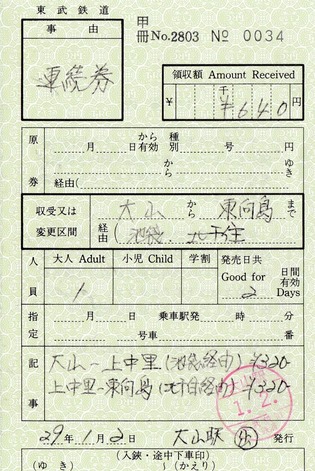 東武鉄道
甲
冊No.2803 № 0034
事由
連続券
領収額 Amount Received
¥ 千 ¥640 円
原券
から 種
月 日有効 別 号 円
から ゆき
経由(
収受又は
変更区間
大山 から 東向島 まで
経由( 池袋、北千住
人員
大人 Adult 小児 Child 学割
1
発売日共 日間有効
Good for 2 Days
指定
月 日 乗車駅発 時 分
号車 番
記事
大山-上中里(池袋経由)¥320-
上中里-東向島(北千住経由)¥320-
29年1月2日 大山駅 発行
(入鋏・途中下車印)
(ゆき) ~(かえり)